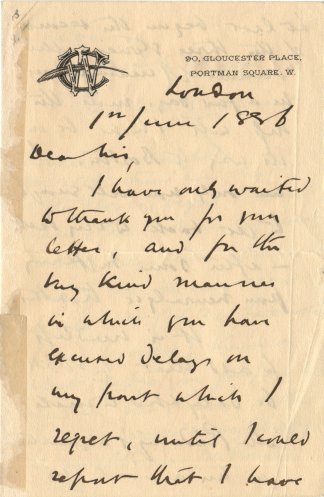 90, GLOUCESTER PLACE,
PORTMAN SQUARE, W.
London
1st June 1886
Dear Sir,
I have only waited
to thank you for your
letter, and for the
very kind manner
in which you have
excused delays on
my part which I
regret, until I could
report that I have